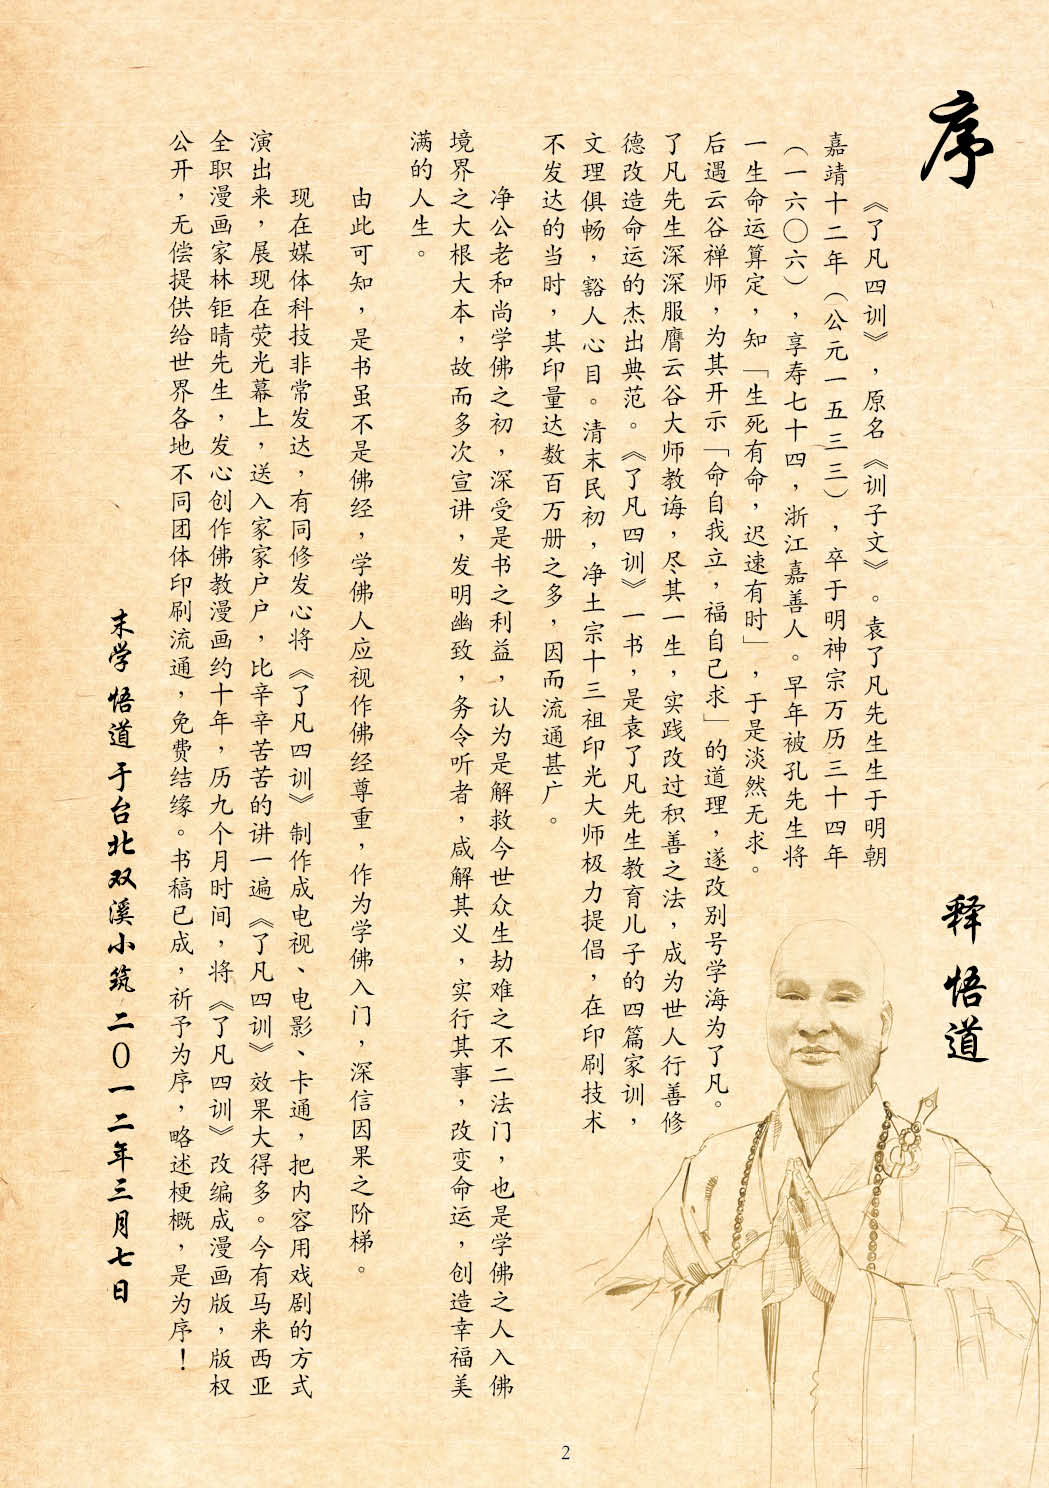 序
释 悟道
《了凡四训》，原名《训子文》。袁了凡先生生于明朝
嘉靖十二年（公元一五三三），卒于明神宗万历三十四年
（一六〇六），享寿七十四，浙江嘉善人。早年被孔先生将
一生命运算定，知「生死有命，迟速有时」，于是淡然无求。
后遇云谷禅师，为其开示「命自我立，福自己求」的道理，遂改别号学海为了凡。
了凡先生深深服膺云谷大师教诲，尽其一生，实践改过积善之法，成为世人行善修
德改造命运的杰出典范。《了凡四训》一书，是袁了凡先生教育儿子的四篇家训，
文理俱畅，豁人心目。清末民初，净土宗十三祖印光大师极力提倡，在印刷技术
不发达的当时，其印量达数百万册之多，因而流通甚广。
净公老和尚学佛之初，深受是书之利益，认为是解救今世众生劫难之不二法门，也是学佛之人入佛
境界之大根大本，故而多次宣讲，发明幽致，务令听者，咸解其义，实行其事，改变命运，创造幸福美
满的人生。
由此可知，是书虽不是佛经，学佛人应视作佛经尊重，作为学佛入门，深信因果之阶梯。
现在媒体科技非常发达，有同修发心将《了凡四训》制作成电视、电影、卡通，把内容用戏剧的方式
演出来，展现在荧光幕上，送入家家户户，比辛辛苦苦的讲一遍《了凡四训》效果大得多。今有马来西亚
全职漫画家林钜晴先生，发心创作佛教漫画约十年，历九个月时间，将《了凡四训》改编成漫画版，版权
公开，无偿提供给世界各地不同团体印刷流通，免费结缘。书稿已成，祈予为序，略述梗概，是为序！
末学 悟道 于台北双溪小筑 二〇一二年三月七日
2